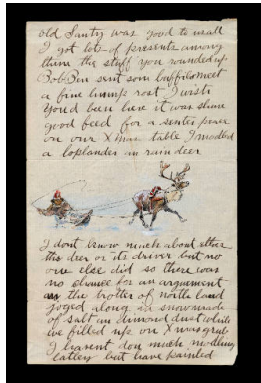 old Santy was good to us all
I got lots of presents among
them the stuff you rounded up
Bob Benn sent som buffilo meet
a fine hump rost I wish
You'd been here it was shure
good feed for a senter piece
on our X mas table I modled
a loplander an rain deer
I dont know much about ether
the deer or its driver but no
one else did so there was
no chance for an argument
as the trotter of north land
joged along in snow made
of salt an dimond dust while
we filled up on X mas grub
I havent don much modling
latley but have painted